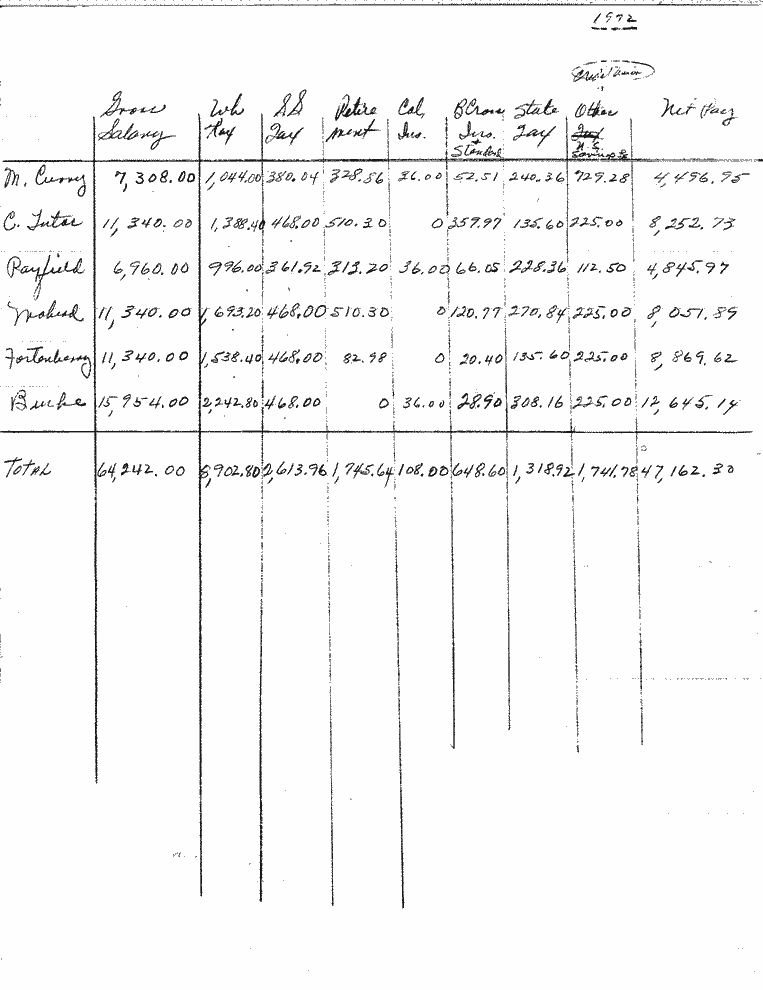 1972
Credit Union
Gross Salary Wh Tax SS Tax Retirement Cal, Ins. B Cross Ins. + Standard State Tax Other Tax U.S. Savings Net Pay
M. Curry 7,308.00 1,044.00 380.04 328.86 36.00 52.51 240.36 729.28 4,496.95
C. Tutor 11,340.00 1,388.40 468.00 510.30 0 359.97 135.60 225.00 8,252.73
Rayfield 6,960.00 996.00 361.92 313.20 36.00 66.05 228.36 112.50 4,845.97
11,340.00 1,693.20 468.00 510.30 0 120.77 270.84 225.00 8,051.89
Fortenberry 11,340.00 1,538.40 468.00 82.98 0 20.40 135.60 225.00 8,869.62
Burke 15,954.00 2,242.80 468.00 0 36.00 28.90 308.16 225.00 12,645.14
TOTAL 64,242.00 8,902.80 2,613.96 1,745.64 108.00 648.60 1,318.92 1,741.78 47,162.30